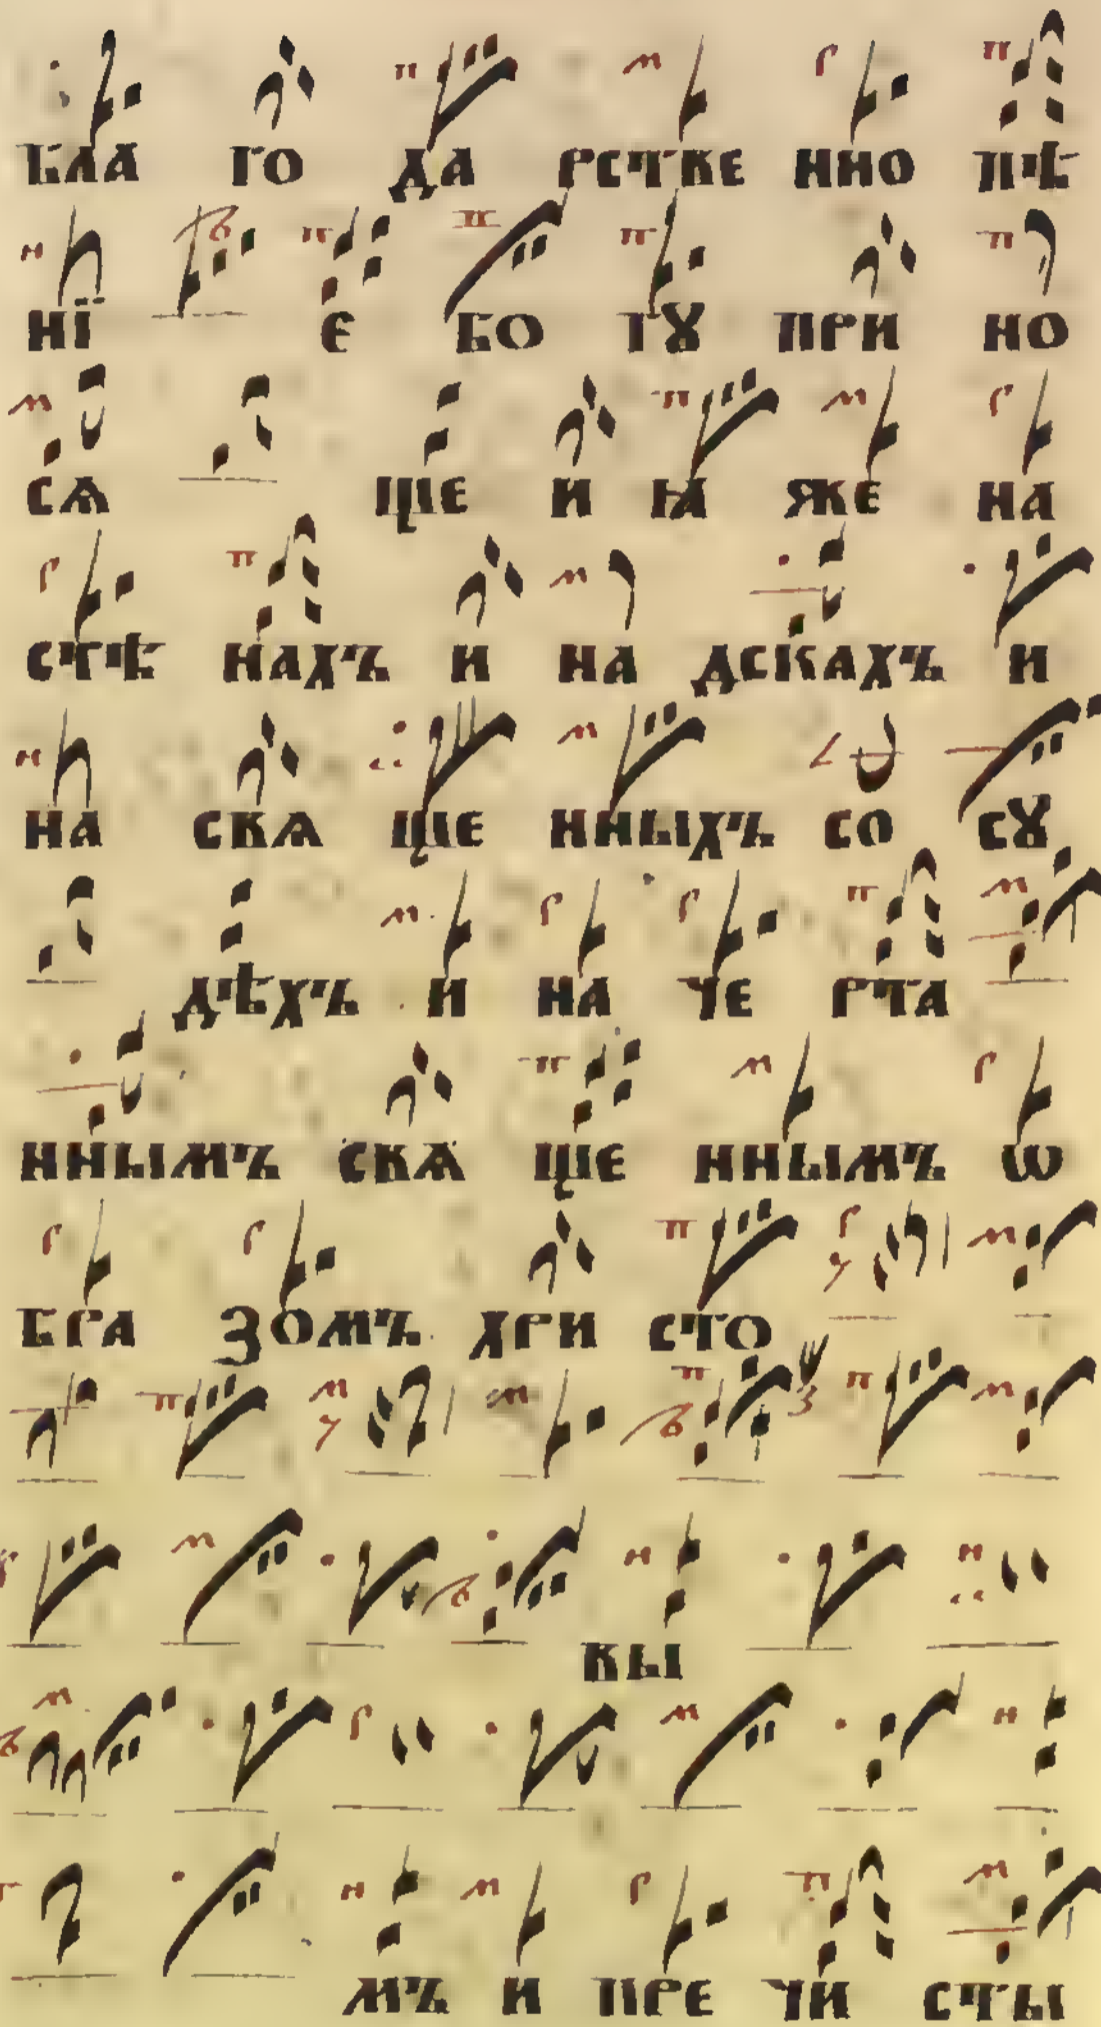 БЛА ГО ДА РСТВЕ ННО ПѢ
НЇ Е БО ГꙊ ПРИ НО
СѦ ЩЕ И Ꙗ ЖЕ НА
СТѢ НАХЪ И НА ДСКАХЪ И
НА СВѦ ЩЕ ННЫХЪ СО СꙊ
ДѢХЪ И НА ЧЕ РТА
ННЫМЪ СВѦ ЩЕ ННЫМЪ Ѡ
БРА ЗОМЪ ХРИ СТО
ВЫ
МЪ И ПРЕ ЧИ СТЫ